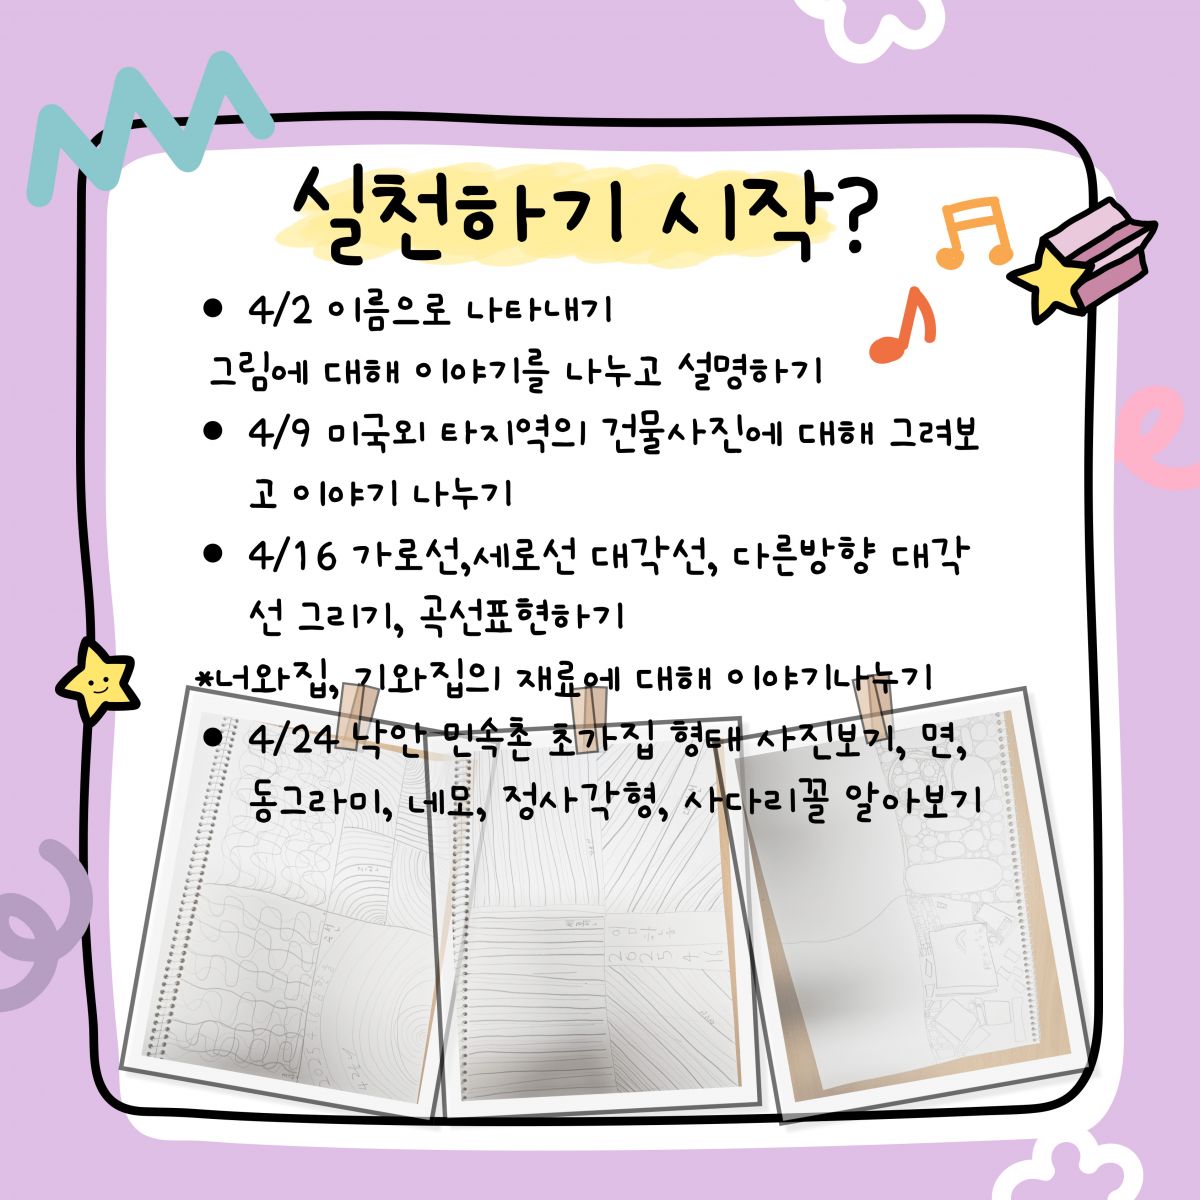 실천하기 시작?
• 4/2 이름으로 나타내기
그림에 대해 이야기를 나누고 설명하기
• 4/9 미국외 타지역의 건물사진에 대해 그려보
고 이야기 나누기
• 4/16 가로선,세로선 대각선, 다른방향 대각
선 그리기, 곡선표현하기
*너와집, 기와집의 재료에 대해 이야기나누기
• 4/24 낙안 민속촌 초가집 형태 사진보기, 면,
동그라미, 네모, 정사각형, 사다리꼴 알아보기
2025